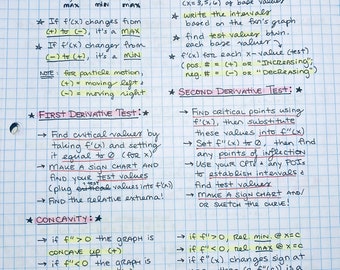 max min max
★ If f'(x) changes from
(+) to (-), it's a MAX
★ If f'(x) changes from
(-) to (+), it's a MIN
NOTE: for particle motion,
(+) = moving left,
(-) = moving right
★ FIRST DERIVATIVE TEST: ★
→ Find critical values by
taking f'(x) and setting
it equal to 0 (for x)
→ MAKE A SIGN CHART AND
FIND your TEST VALUES
(plug test values into f'(x))
→ Find the relative extrema!
★ CONCAVITY: ★
→ if f">0 the graph is
concave up (+)
→ if f"<0 the graph is
(x=3,5,6) or base values
★ WRITE the INTERVALS
based on the fxn's graph
★ find TEST VALUES btwn.
each base value
★ f'(x) for each x-value (test)
pos. # = (+) or "INCREASING"
neg. # = (-) or "DECREASING"
★ SECOND DERIVATIVE TEST: ★
→ Find critical points using
f'(x), then substitute
these values into f"(x)
→ Set f"(x) to 0, then find
any points of inflection
→ Use your CPTs and any POIs
to establish intervals &
find test values
→ MAKE A SIGN CHART and/
or sketch the curve!
→ if f">0, rel. min @ x=c
→ if f"<0, rel. max @ x=c
→ if f"(x) changes sign at